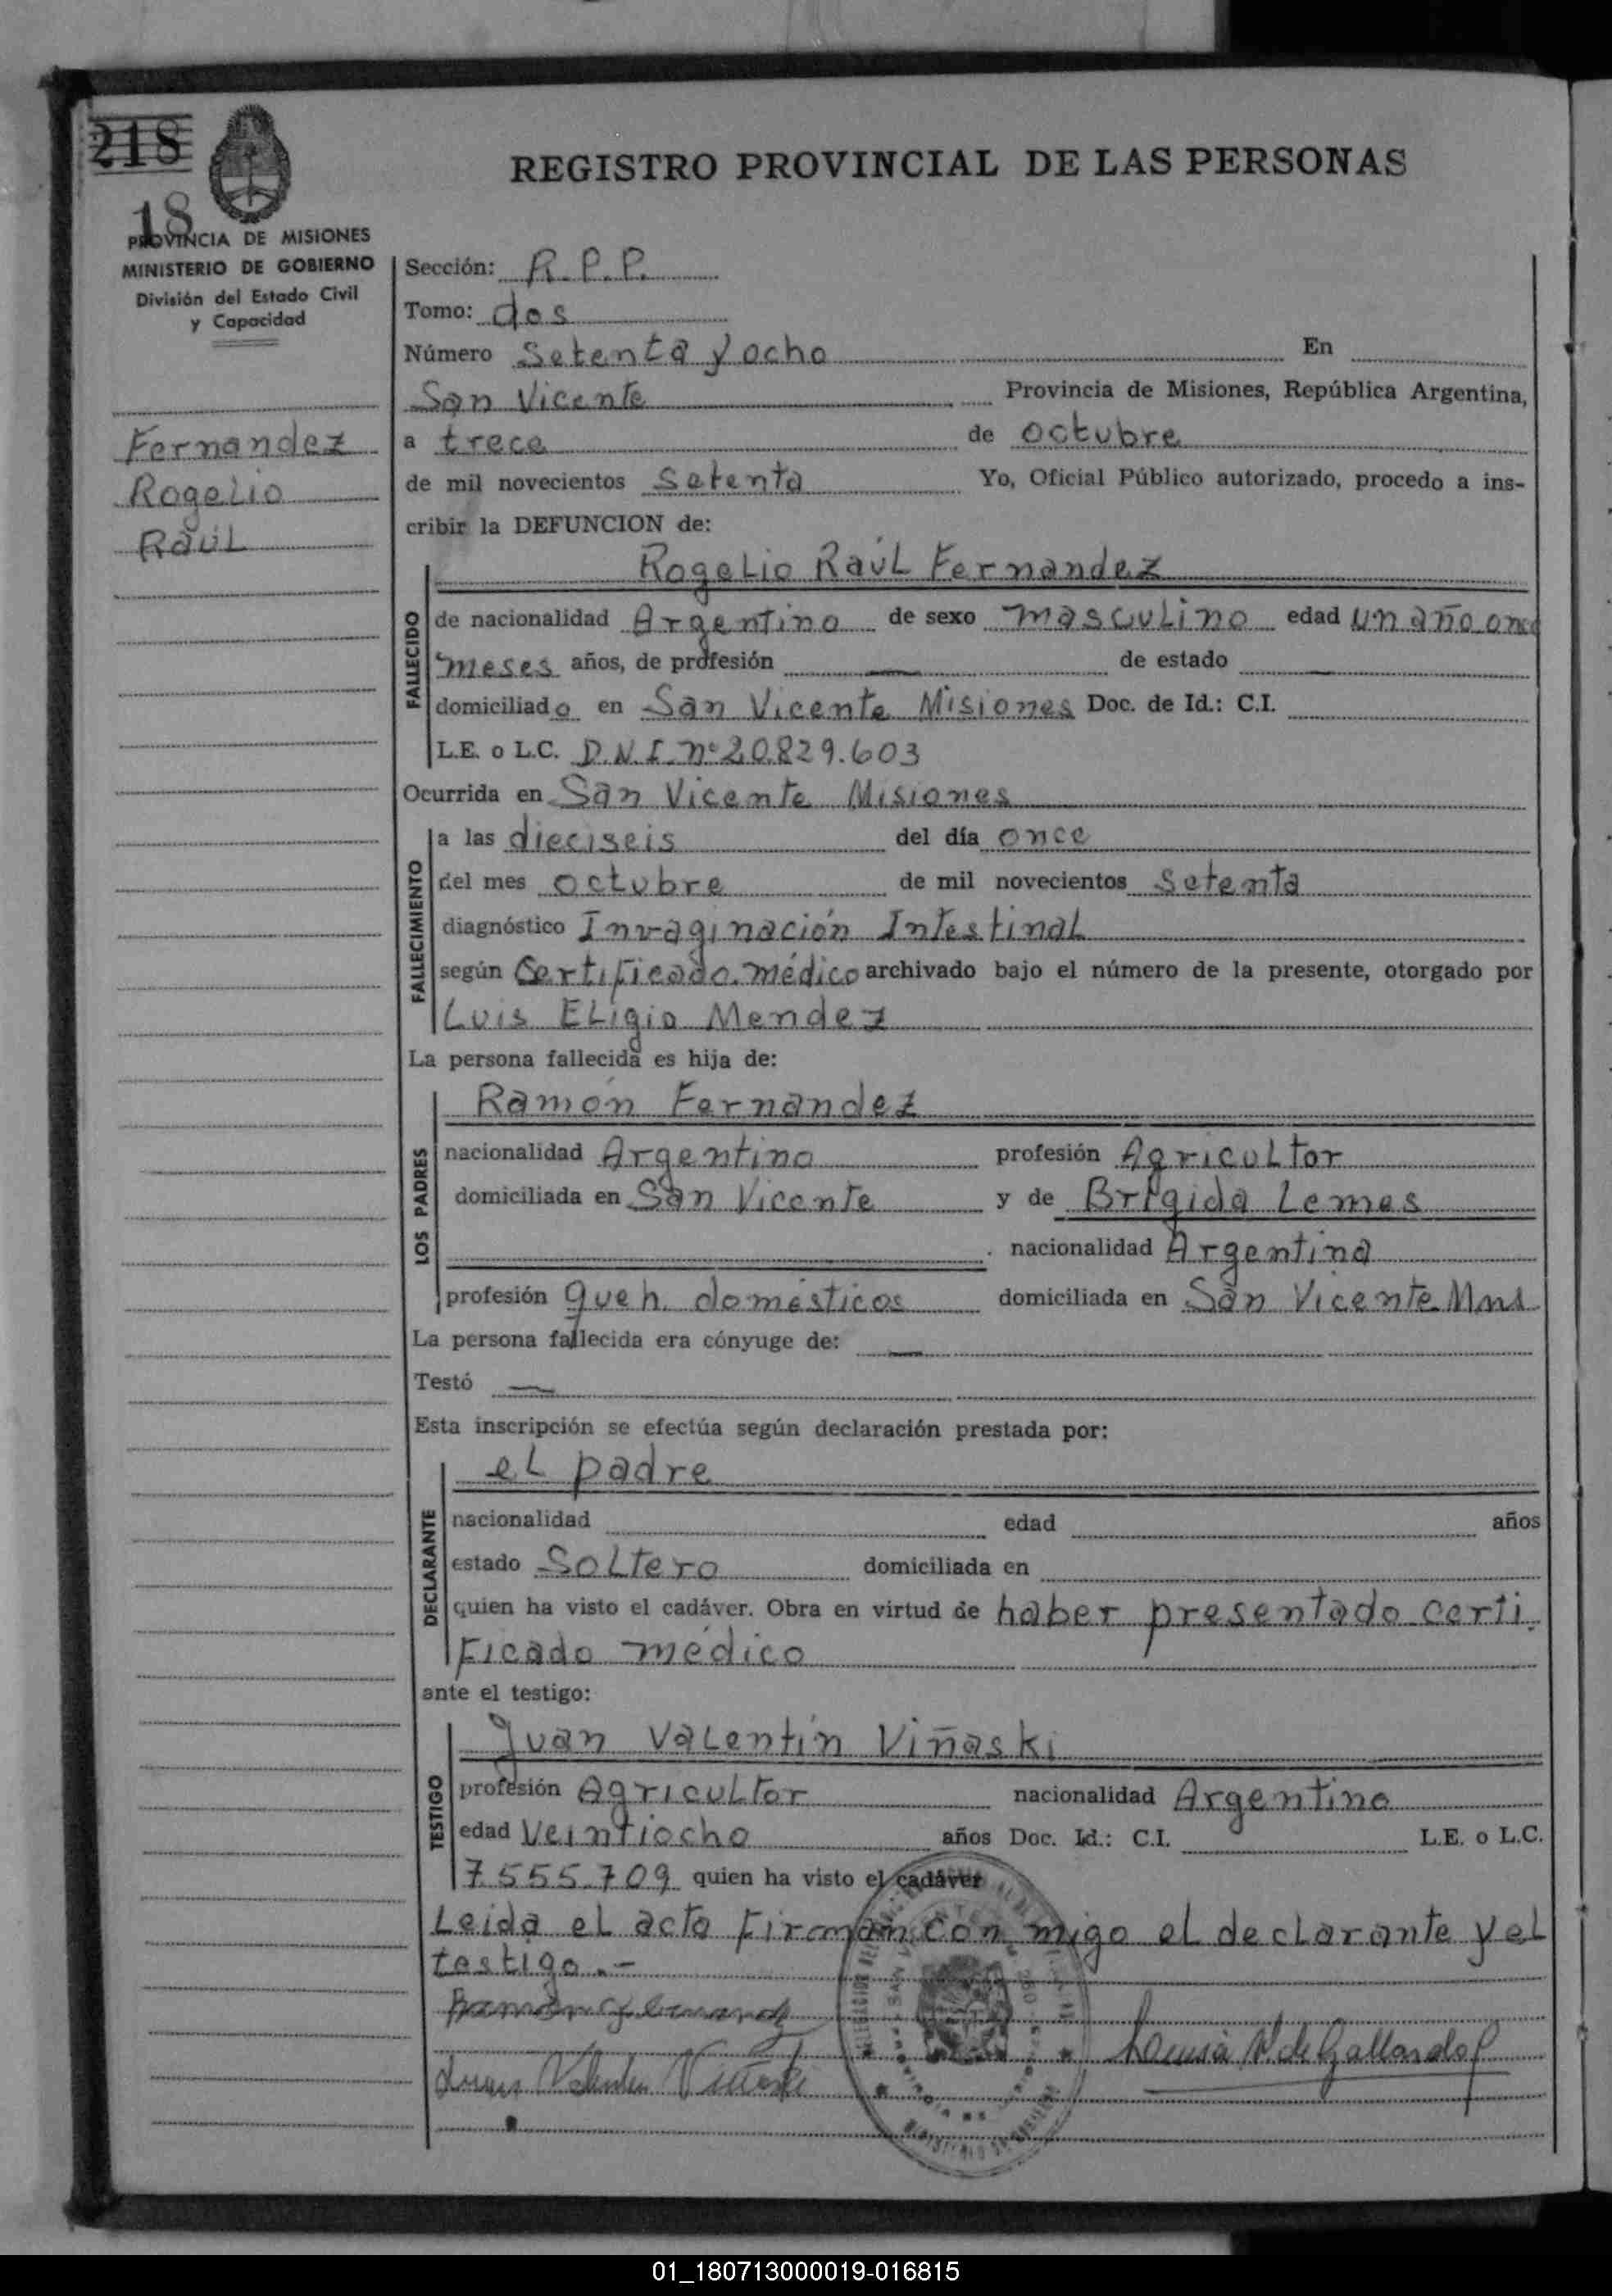 218
18
REGISTRO PROVINCIAL DE LAS PERSONAS
PROVINCIA DE MISIONES
MINISTERIO DE GOBIERNO
División del Estado Civil
y Capacidad
Fernandez
Rogelio
Raúl
Sección: R.P.P.
Tomo: dos
Número Setenta y ocho En
San Vicente Provincia de Misiones, República Argentina,
a trece de octubre
de mil novecientos Setenta Yo, Oficial Público autorizado, procedo a ins-
cribir la DEFUNCION de:
Rogelio Raúl Fernandez
FALLECIDO
de nacionalidad Argentino de sexo masculino edad un año once
meses años, de profesión — de estado —
domiciliado en San Vicente Misiones Doc. de Id.: C.I.
L.E. o L.C. D.N.I. nº 20.829.603
Ocurrida en San Vicente Misiones
FALLECIMIENTO
a las dieciseis del día once
del mes octubre de mil novecientos Setenta
diagnóstico Invaginación Intestinal
según Certificado médico archivado bajo el número de la presente, otorgado por
Luis Eligio Mendez
La persona fallecida es hija de:
LOS PADRES
Ramón Fernandez
nacionalidad Argentino profesión Agricultor
domiciliada en San Vicente y de Brigida Lemes
nacionalidad Argentina
profesión queh. domésticos domiciliada en San Vicente Mns
La persona fallecida era cónyuge de: —
Testó —
Esta inscripción se efectúa según declaración prestada por:
DECLARANTE
el padre
nacionalidad edad años
estado Soltero domiciliada en
quien ha visto el cadáver. Obra en virtud de haber presentado certi
ficado médico
ante el testigo:
TESTIGO
Juan Valentín Viñaski
profesión Agricultor nacionalidad Argentino
edad Veintiocho años Doc. Id.: C.I. L.E. o L.C.
7.555.709 quien ha visto el cadáver
Leida el acta firman con migo el declarante y el
testigo.-
Ramón
de Gallardo
01_180713000019-016815